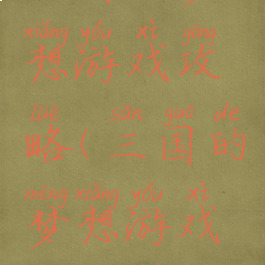 xiǎng yóu xì gōng
想游戏攻
lüè sān guó de
略(三国的
mèng xiǎng yóu xì
梦想游戏